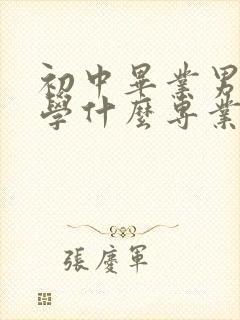 初中畢業男
學什麼專業
張慶軍